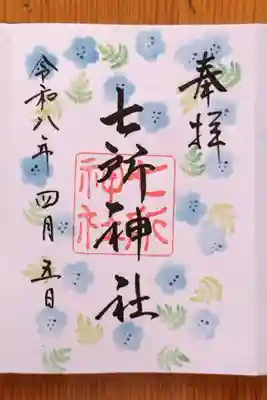 奉拝
七所神社
七所神社
令和八年 四月 五日